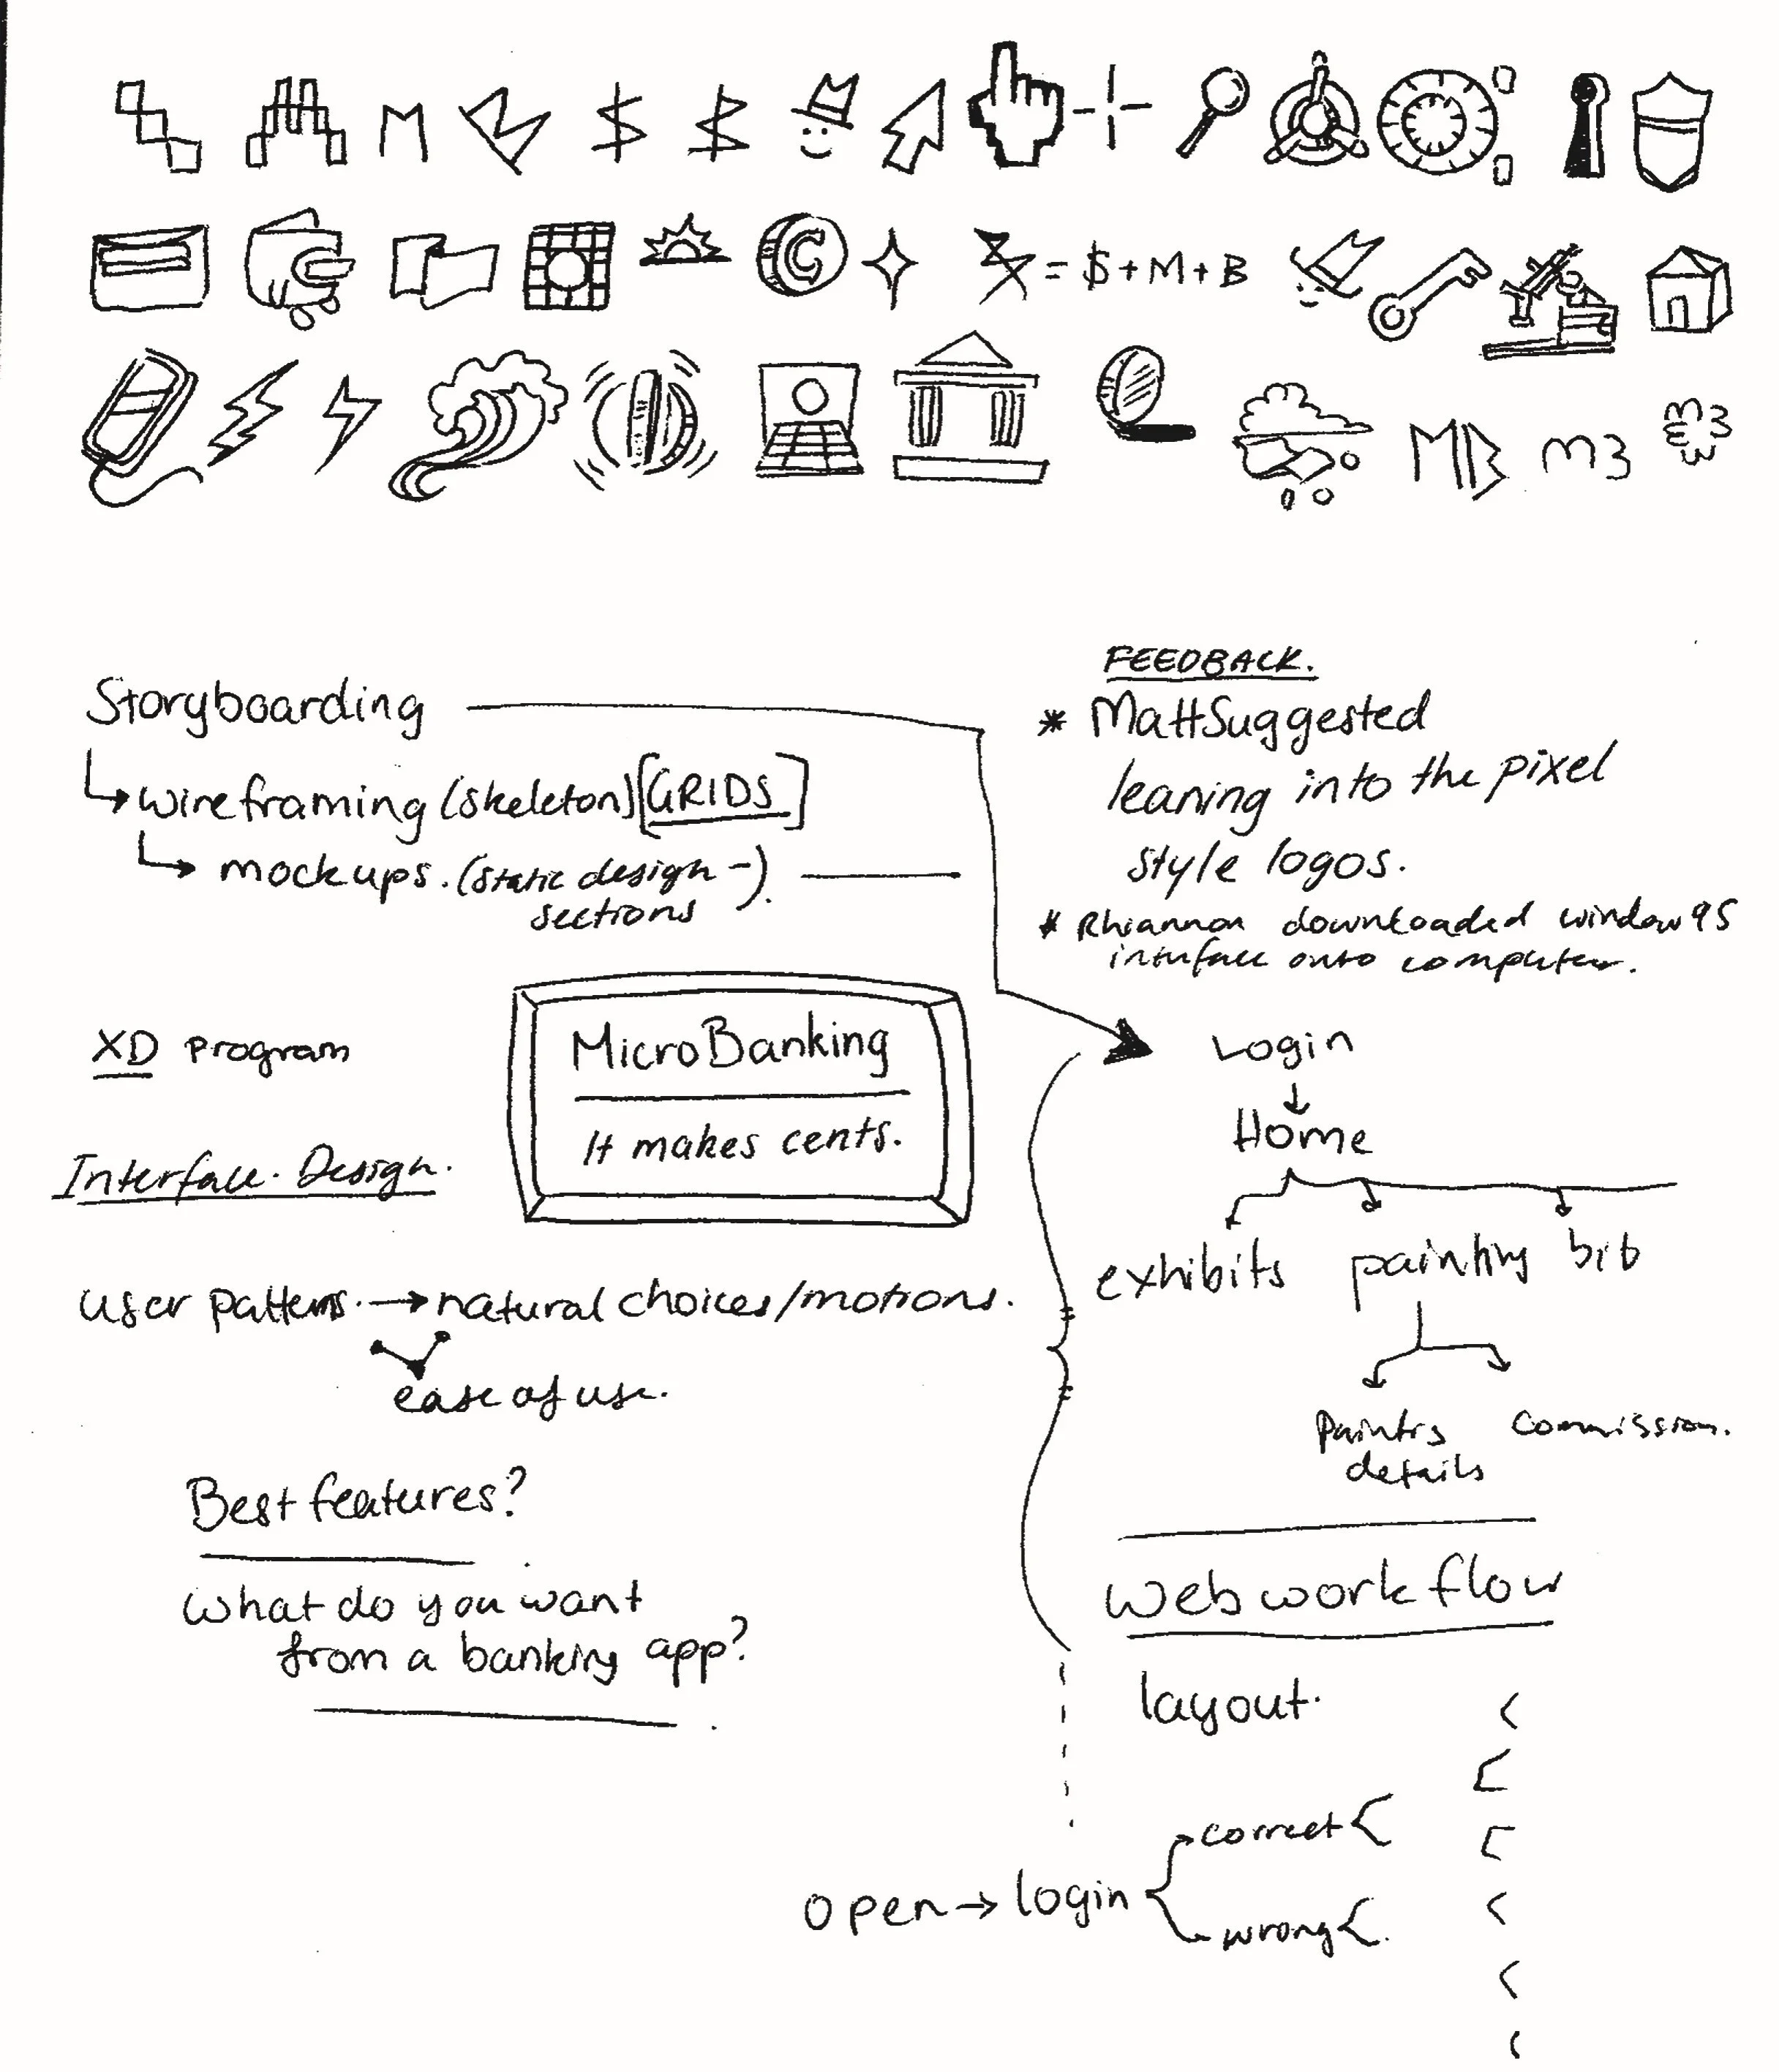 M
= $ + M + B
MB
m3
Storyboarding
wireframing (skeleton) [GRIDS]
mockups. (static design -)
sections
XD program
Interface Design.
MicroBanking
It makes cents.
user patterns. → natural choices/motions.
ease of use.
Best features?
What do you want
from a banking app?
FEEDBACK.
* Matt Suggested
leaning into the pixel
style logos.
* Rhiannon downloaded window 95
interface onto computer.
Login
Home
exhibits painting
details commission.
web workflow
layout.
open → login
correct
wrong